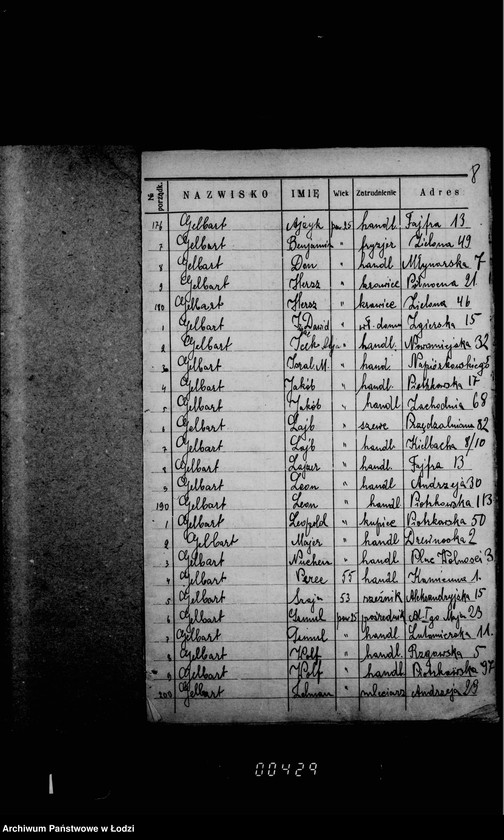 8
№ porządk. NAZWISKO IMIĘ Wiek Zatrudnienie Adres
176 Gelbart Ajzyk pow. 25 handl. Fajfra 13
7 Gelbart Benjamin " fryzjer Zielona 49
8 Gelbart Don " handl Młynarska 7
9 Gelbart Hersz " krawiec Północna 21
180 Gelbart Hersz " krawiec Zielona 46
1 Gelbart Dawid " wł. domu Zgierska 15
2 Gelbart Icek " handl. Nowomiejska 32
3 Gelbart Israel M. " handl Napiórkowskiego
4 Gelbart Jakób " handl. Piotrkowska 17
5 Gelbart Jakób " handl Zachodnia 68
6 Gelbart Lajb " szewc 82
7 Gelbart Lajb " handl. Kielbacha 8/10
8 Gelbart Lajzer " handl. Fajfra 13
9 Gelbart Leon " handl Andrzeja 30
190 Gelbart Leon " handl Piotrkowska 113
1 Gelbart Leopold " kupiec Piotrkowska 50
2 Gelbart Major " handl Drewnowska 2
3 Gelbart Nuchem " handl Plac Wolności 3
4 Gelbart Perec 55 handl Kamienna 1
5 Gelbart Szaja 53 rzeźnik Aleksandryjska 15
6 Gelbart pow. 25 pośrednik Al. I go Maja 23
7 Gelbart " handl Lutomierska 11
8 Gelbart Wolf " handl. Rzgowska 5
9 Gelbart Wolf " handl Piotrkowska 97
200 Gelbart Zelman " mleczarz Andrzeja 29
00429
Archiwum Państwowe w Łodzi